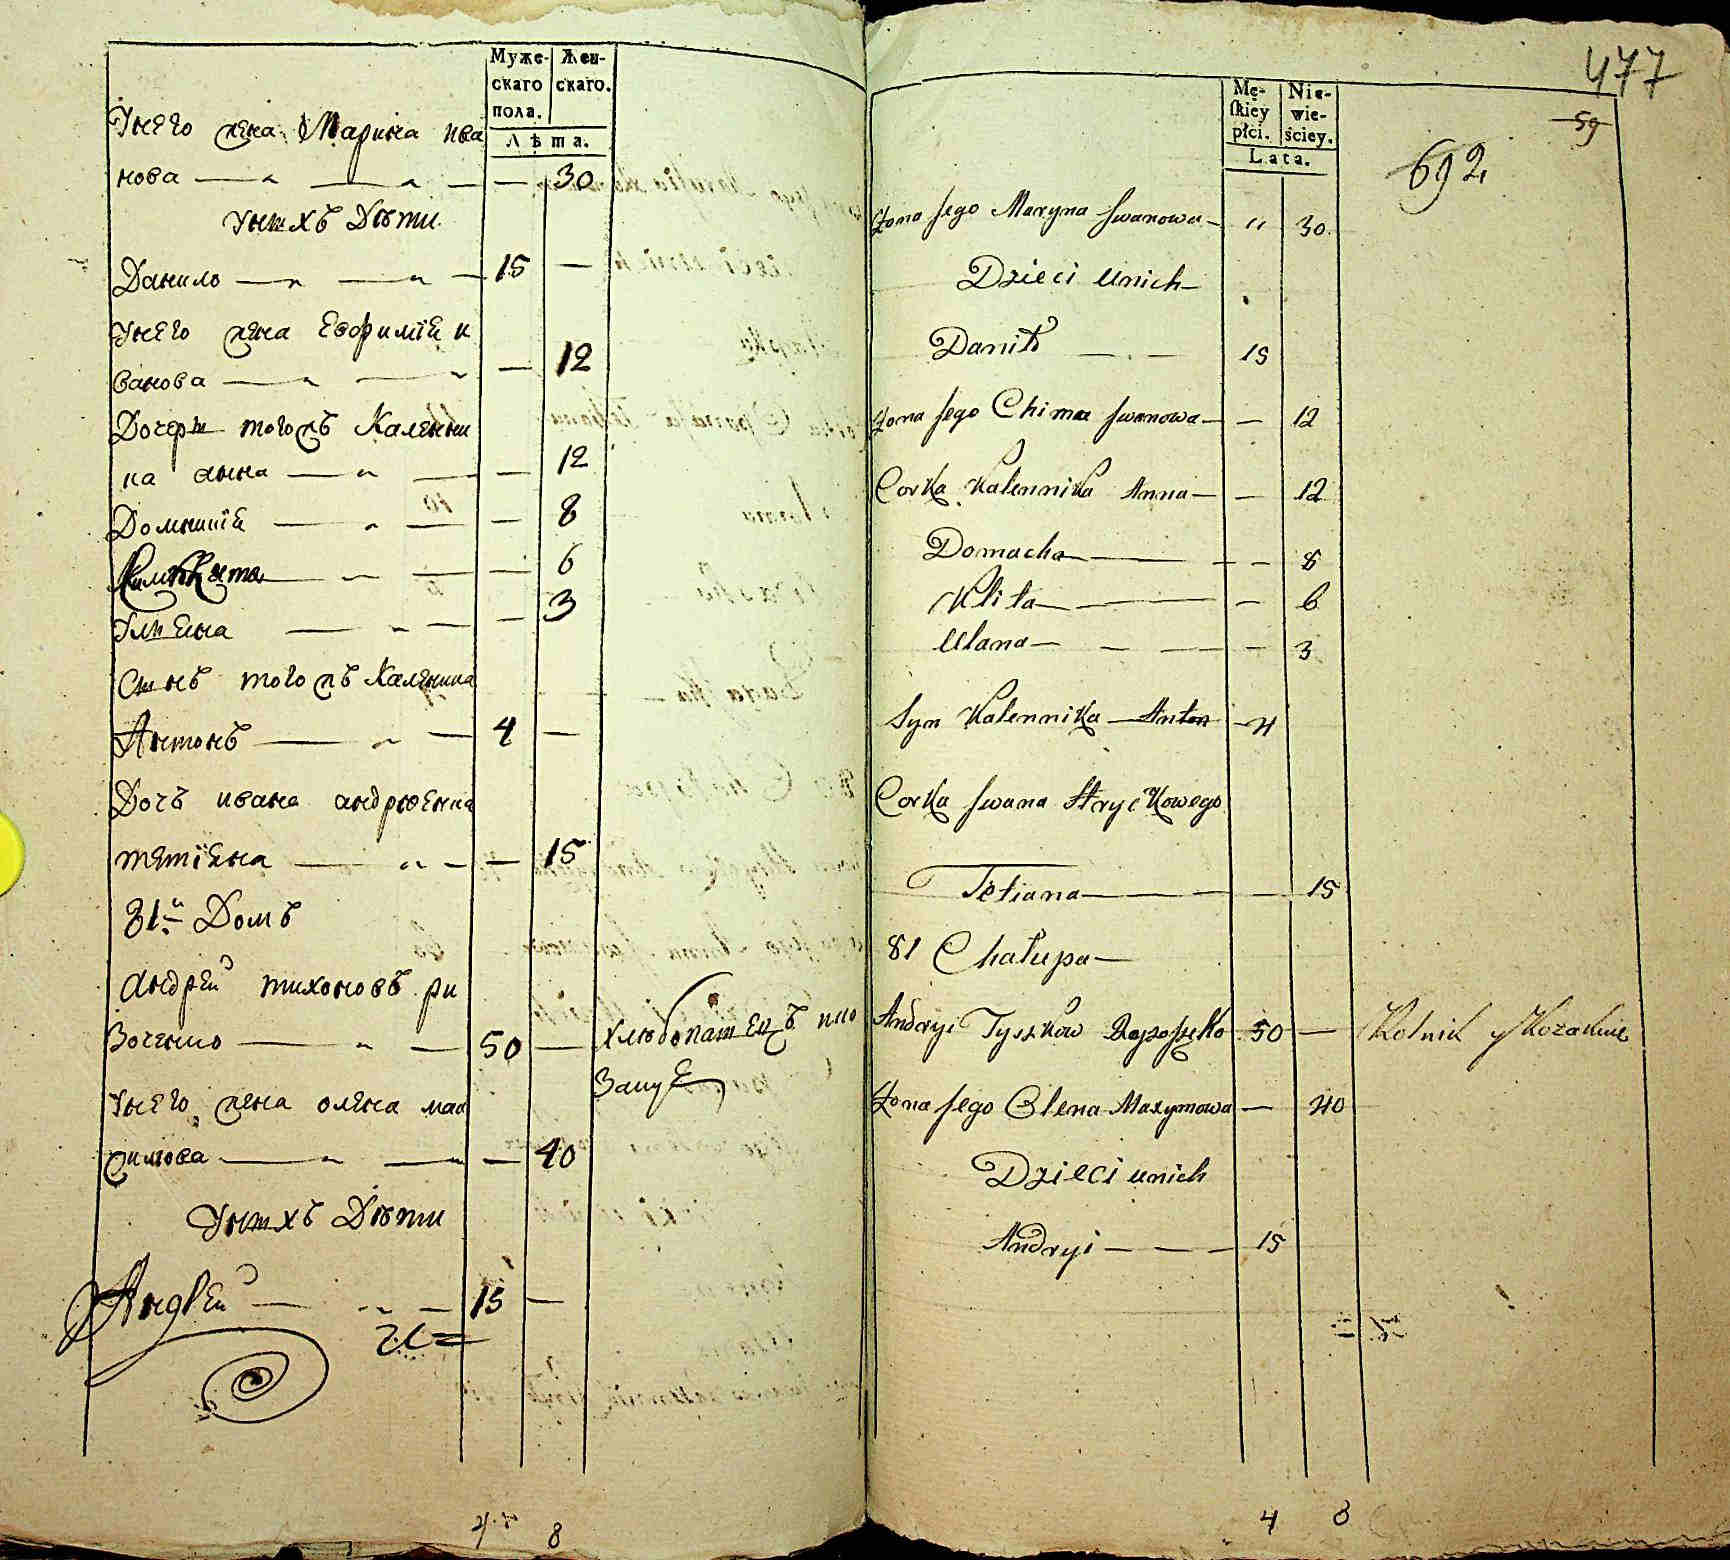 Муже-
скаго
пола.
Жен-
скаго.
Лѣта.
Унего жена Марина ива
нова — — — 30
Унихъ Дѣти
Данило — — — 15 —
Унего жена Евфимия и
ванова — — — 12
Дочери тогожъ Каленни
ка анна — — — 12
Домникия — — — 8
— 6
Улияна — — — 3
Сынъ тогожъ Каленика
Антонъ — — — 4 —
Дочъ ивана андрюенка
тетияна — — — 15
81й Домъ
андрей тихоновъ ри
зоченко — — — 50 — хлѣбопашецъ изъ
Унего жена олена мак
симова — — — 40
Унихъ Дѣти
Андрей — — — 15 —
4 8
477
59
692
Mę-
ſkiey
płci.
Nie-
wie-
ściey.
Lata.
Żona Jego Maryna Jwanowa — " 30
Dzieci unich
Daniło — — 15
Żona Jego Chima Jwanowa — — 12
Corka Kalennika Anna — — 12
Domacha — — 8
Klita — — 6
Ulana — — 3
Syn Kalennika — Anton — 4
Corka Jwana
Tetiana — — 15
81 Chałupa —
Andryi Tyszkow 50 — Rolnik y
Żona Jego Olena Maxymowa — 40
Dzieci unich
Andryi — — — 15
4 8